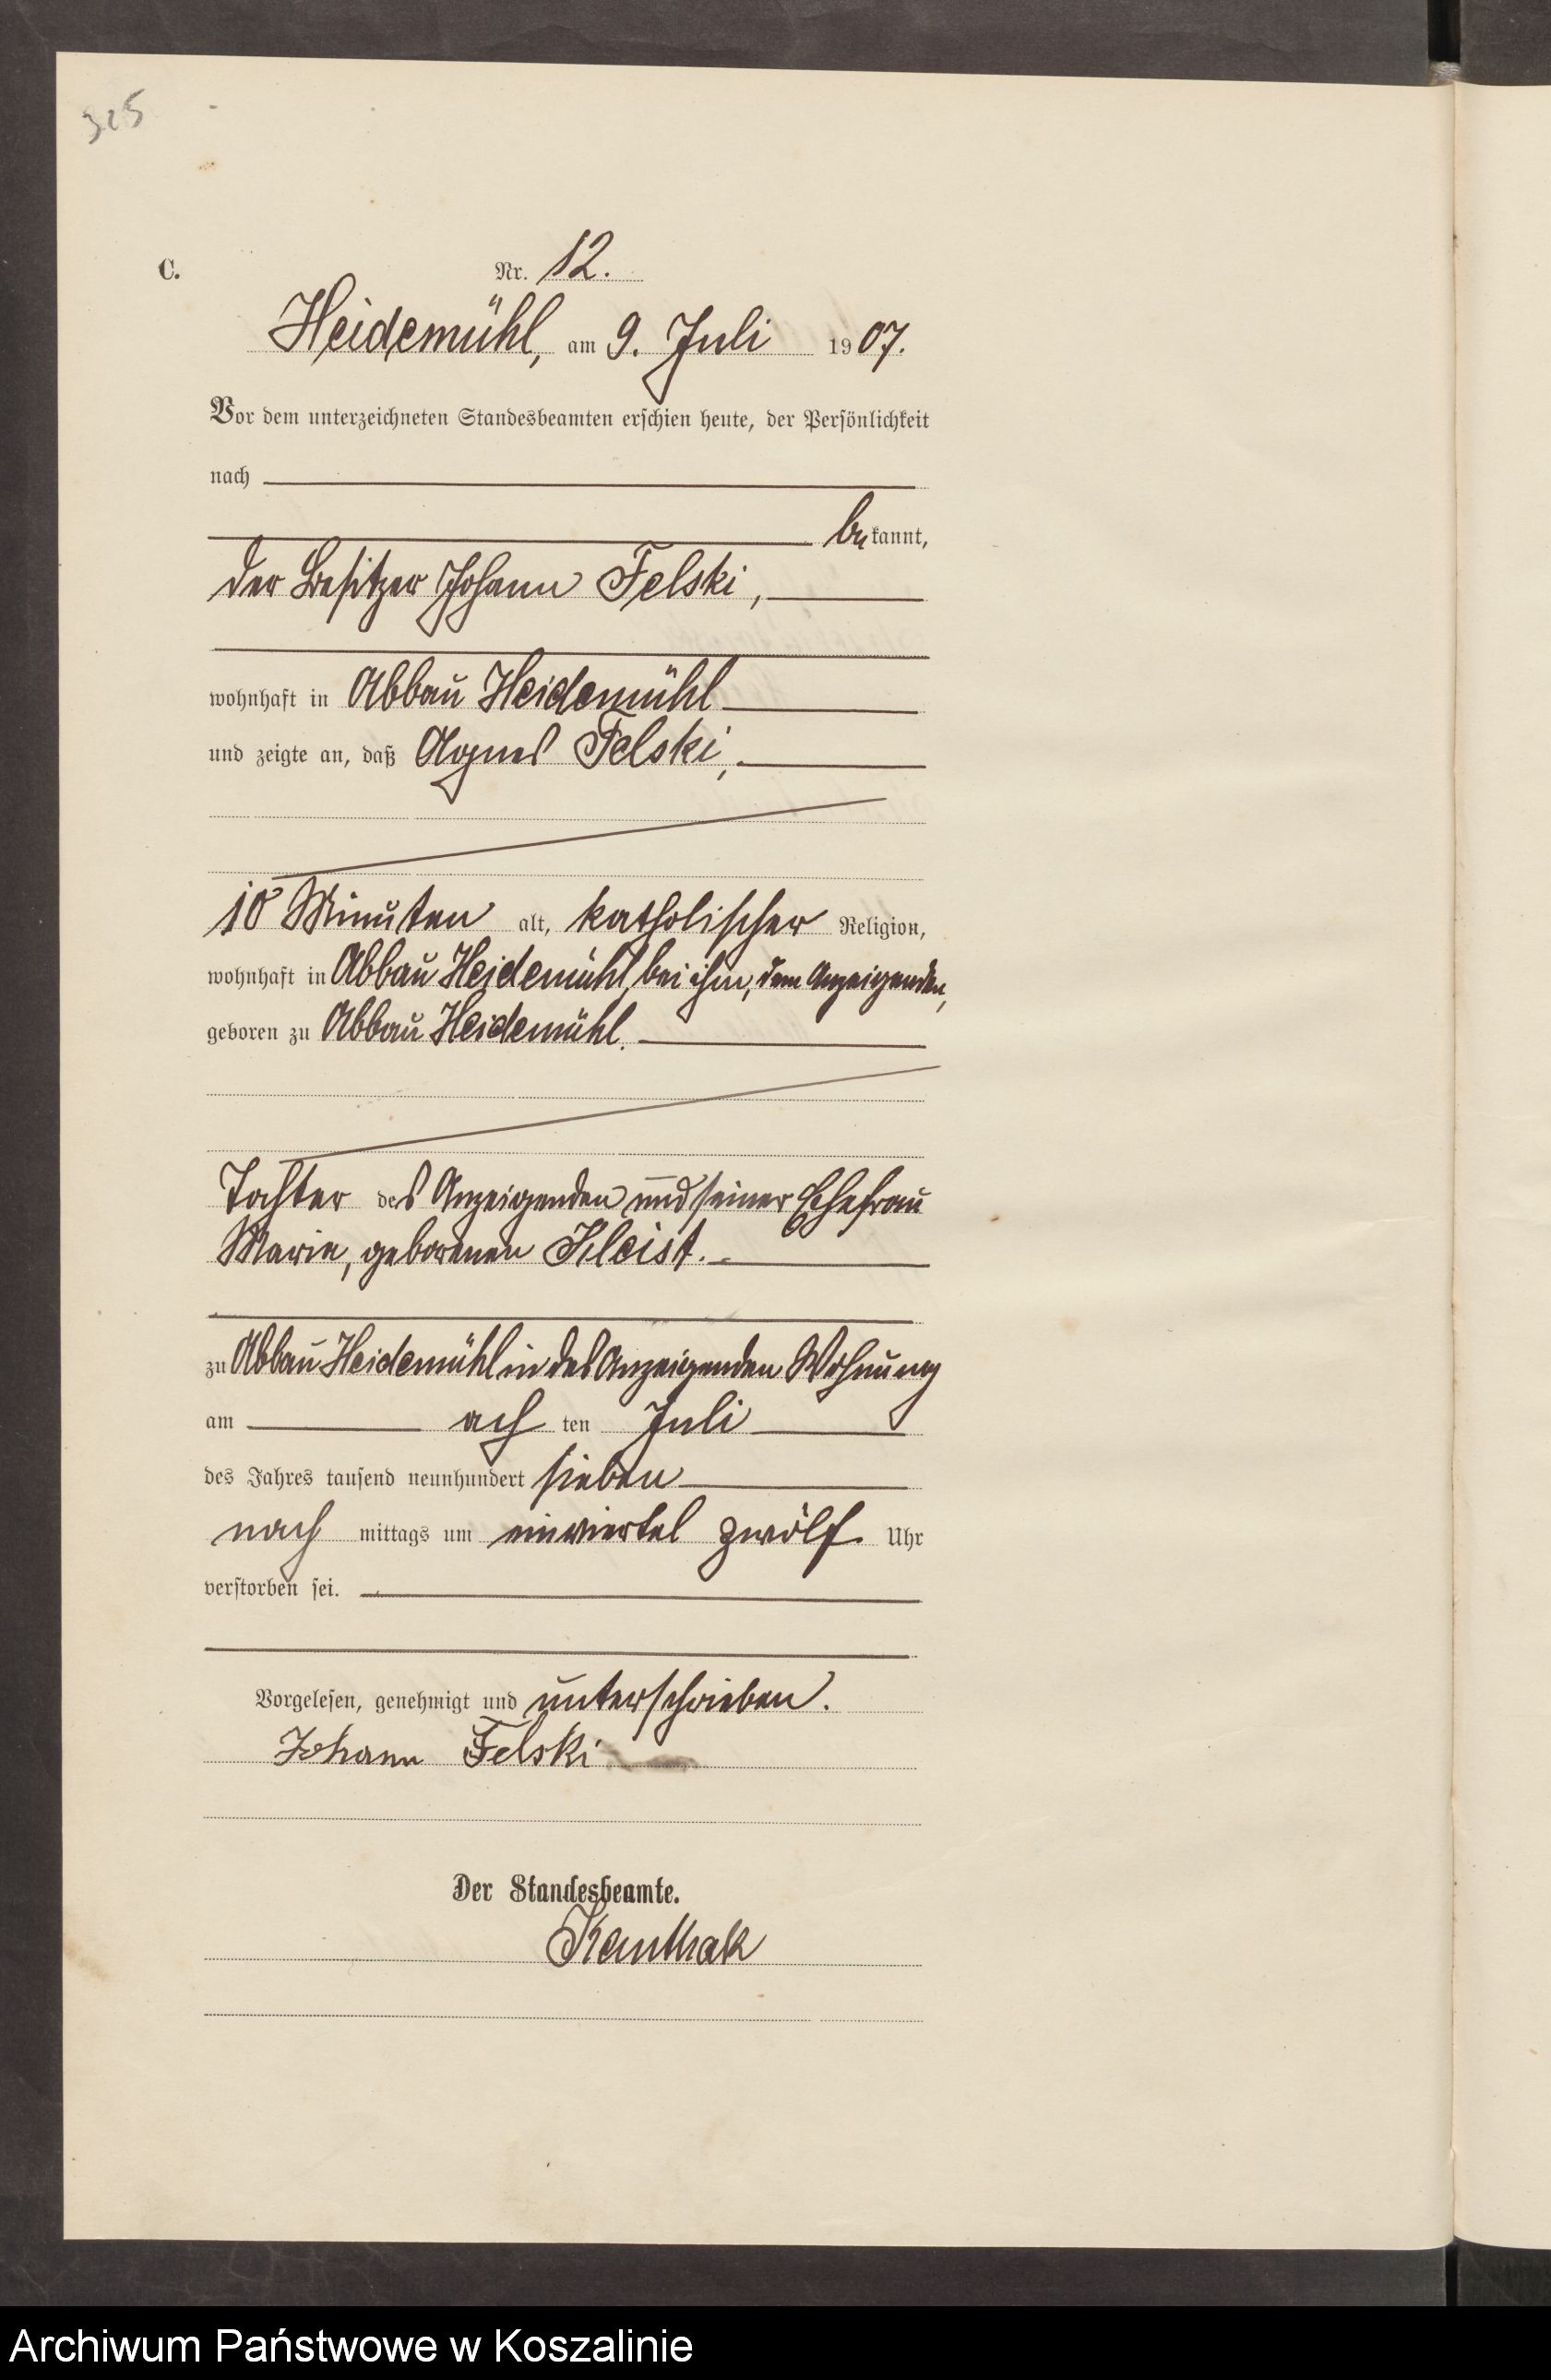 325
C.
Nr. 12.
Heidemühl, am 9. Juli 1907.
Vor dem unterzeichneten Standesbeamten erschien heute, der Persönlichkeit
nach
bekannt,
der Besitzer Johann Felski,
wohnhaft in Abbau Heidemühl
und zeigte an, daß Agnes Felski,
10 Minuten alt, katholischer Religion,
wohnhaft in Abbau Heidemühl, bei ihm, dem Anzeigenden,
geboren zu Abbau Heidemühl.
Tochter des Anzeigenden und seiner Ehefrau
Marie, geborenen Kleist.
zu Abbau Heidemühl in des Anzeigenden Wohnung
am achten Juli
des Jahres tausend neunhundert sieben
nachmittags um einviertel zwölf Uhr
verstorben sei.
Vorgelesen, genehmigt und unterschrieben.
Johann Felski
Der Standesbeamte.
Archiwum Państwowe w Koszalinie